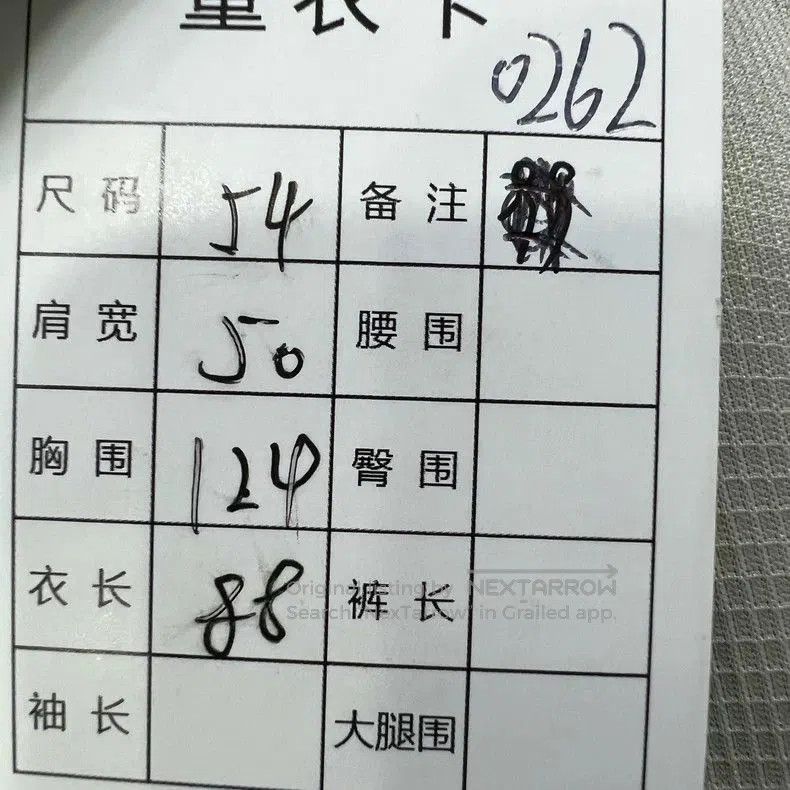 量衣卡
0262
尺码 54 备注
肩宽 50 腰围
胸围 124 臀围
衣长 88 裤长
袖长 大腿围
Original listing by NEXTARROW
Search "NexTarrow" in Grailed app.